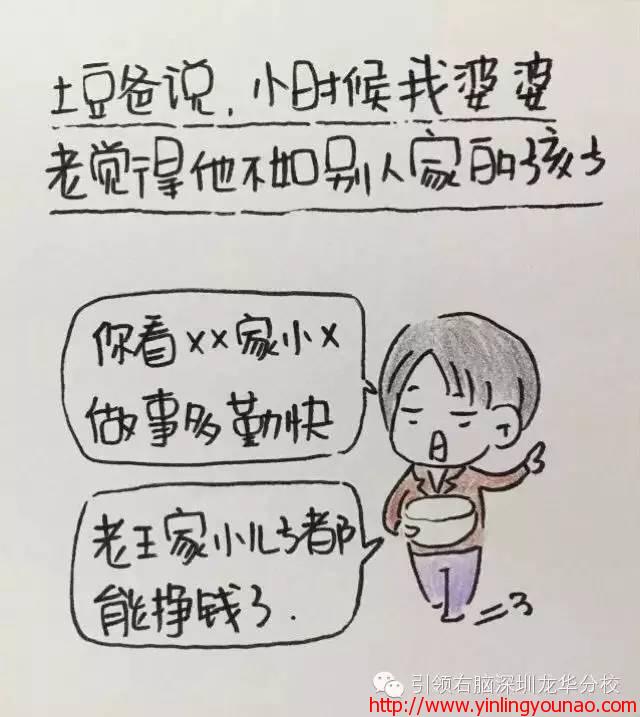 土豆爸说,小时候我婆婆
老觉得他不如别人家的孩子
你看xx家小x
做事多勤快
老王家小儿子都
能挣钱了.
引领右脑深圳龙华分校
http://www.yinlingyounao.com